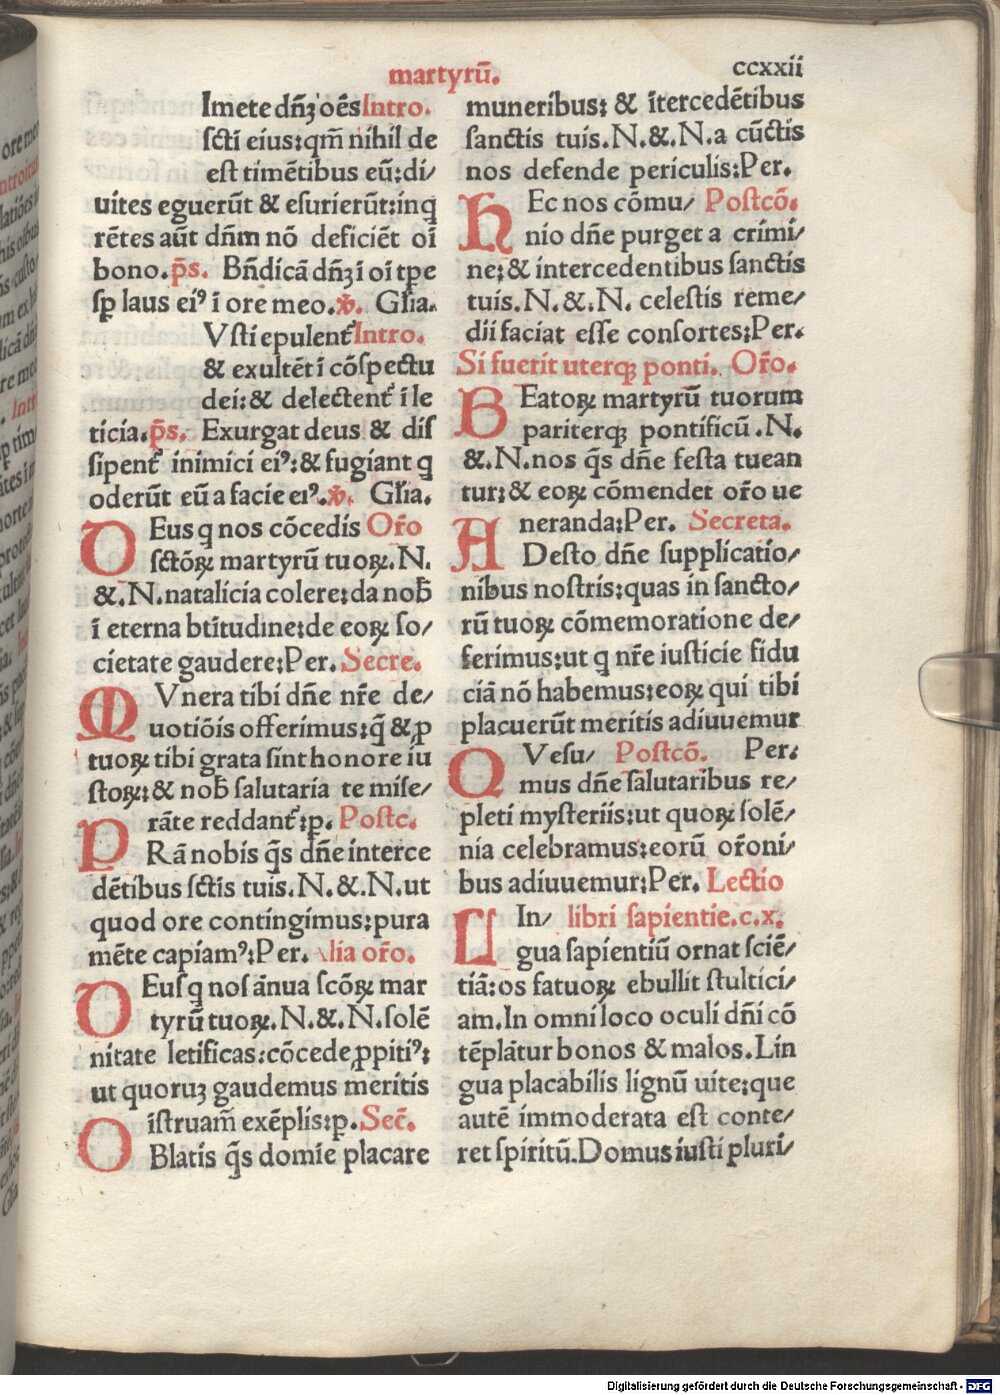 martyrū.
ccxxii
Imete dn̄ꝫ oēs Intro.
ſcti eius: qm̄ nihil de
eſt timētibus eū: di/
uites eguerūt & eſurierūt: inq
rētes aūt dn̄m nō deficiēt oī
bono. p̄s. Bn̄dicā dn̄ꝫ ī oī tꝑe
sꝑ laus eiꝰ ī ore meo. ℣. Gl̄ia.
Vſti epulent̄ Intro.
& exultēt ī cōſpectu
dei: & delectent̄ ī le
ticia. p̄s. Exurgat deus & diſ
ſipent̄ inimici eiꝰ: & fugiant q
oderūt eū a facie eiꝰ. ℣. Gl̄ia.
DEus q nos cōcedis Oro̅
ſctōꝝ martyrū tuoꝝ. N.
&. N. natalicia colere: da nob̄
ī eterna btītudine: de eoꝝ ſo/
cietate gaudere: Per. Secre.
MVnera tibi dn̄e nr̄e de/
uotiōis offerimus: q̄ & ꝓ
tuoꝝ tibi grata ſint honore iu
ſtoꝝ: & nob̄ ſalutaria te miſe/
rāte reddant̄: p. Poſtc.
PRā nobis q̄s dn̄e interce
dētibus ſctis tuis. N. &. N. ut
quod ore contingimus: pura
mēte capiamꝰ: Per. lia oro̅.
DEus q nos ānua ſcōꝝ mar
tyrū tuoꝝ. N. &. N. ſolē
nitate letificas: cōcede ꝓpitiꝰ:
ut quoruꝫ gaudemus meritis
iſtruam̄ exēplis: p. Sec̄.
OBlatis q̄s domie placare
muneribus: & ītercedētibus
ſanctis tuis. N. &. N. a cūctis
nos defende periculis: Per.
HEc nos cōmu/ Poſtcō.
nio dn̄e purget a crimi/
ne: & intercedentibus ſanctis
tuis. N. &. N. celeſtis reme/
dii faciat eſſe conſortes: Per.
Si fuerit uterqꝫ ponti. Oro̅.
BEatoꝝ martyrū tuorum
pariterqꝫ pontificū . N.
&. N. nos q̄s dn̄e feſta tuean
tur: & eoꝝ cōmendet oro̅ ue
neranda: Per. Secreta.
ADeſto dn̄e ſupplicatio/
nibus noſtris: quas in ſancto/
rū tuoꝝ cōmemoratione de/
ferimus: ut q nr̄e iuſticie fidu
ciā nō habemus: eoꝝ qui tibi
placuerūt meritis adiuuemur
QVeſu/ Poſtcō. Per.
mus dn̄e ſalutaribus re/
pleti myſteriis: ut quoꝝ ſolē/
nia celebramus: eorū oro̅ni/
bus adiuuemur: Per. Lectio
LIn/ libri ſapientie. c. x.
gua ſapientiū ornat ſciē/
tiā: os fatuoꝝ ebullit ſtultici/
am. In omni loco oculi dn̄i cō
tēplātur bonos & malos. Lin
gua placabilis lignū uite: que
autē immoderata eſt conte/
ret ſpiritū. Domus iuſti pluri/
Digitalisierung gefördert durch die Deutsche Forschungsgemeinschaft - DFG